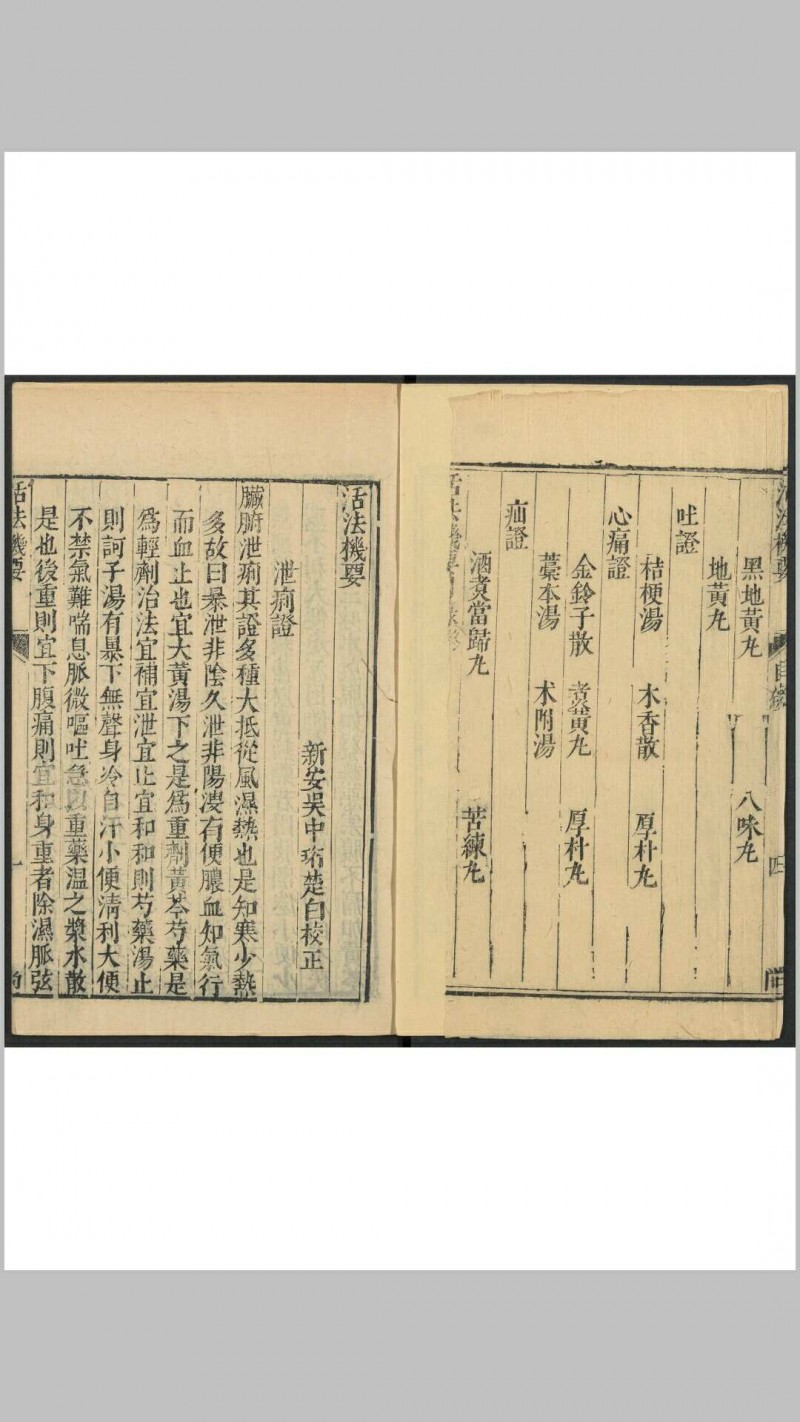 活法機要
目錄
四
黑地黃丸　八味丸
地黃丸
吐證
桔梗湯　木香散　厚朴丸
心痛證
金鈴子散　煑黃丸　厚朴丸
藁本湯　术附湯
疝證
酒煑當歸丸　苦練丸
活法機要目錄終
活法機要
新安吳中珩楚白校正
泄痢證
臟腑泄痢其證多種大抵從風濕熱也是知寒少熱
多故曰暴泄非陰久泄非陽溲有便膿血知氣行
而血止也宜大黃湯下之是爲重劑黃芩芍藥是
爲輕劑治法宜補宜泄宜止宜和和則芍藥湯止
則訶子湯有暴下無聲身冷自汗小便淸利大便
不禁氣難喘息脈微嘔吐急以重藥溫之漿水散
是也後重則宜下腹痛則宜和身重者除濕脈弦
活法機要
一